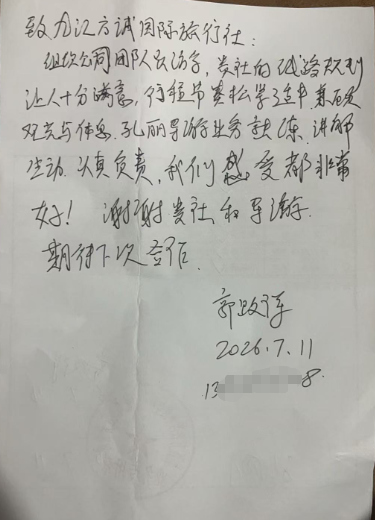 致九江方诚国际旅行社:
组织公司团队长游,贵社的线路规划
让人十分满意,行程节奏松紧适中,兼顾
观光与休息.孔丽导游业务熟练.讲解
生动.认真负责,我们感受都非常
好!谢谢贵社和导游.
期待下次合作.
郭
2026.7.11
13 8.